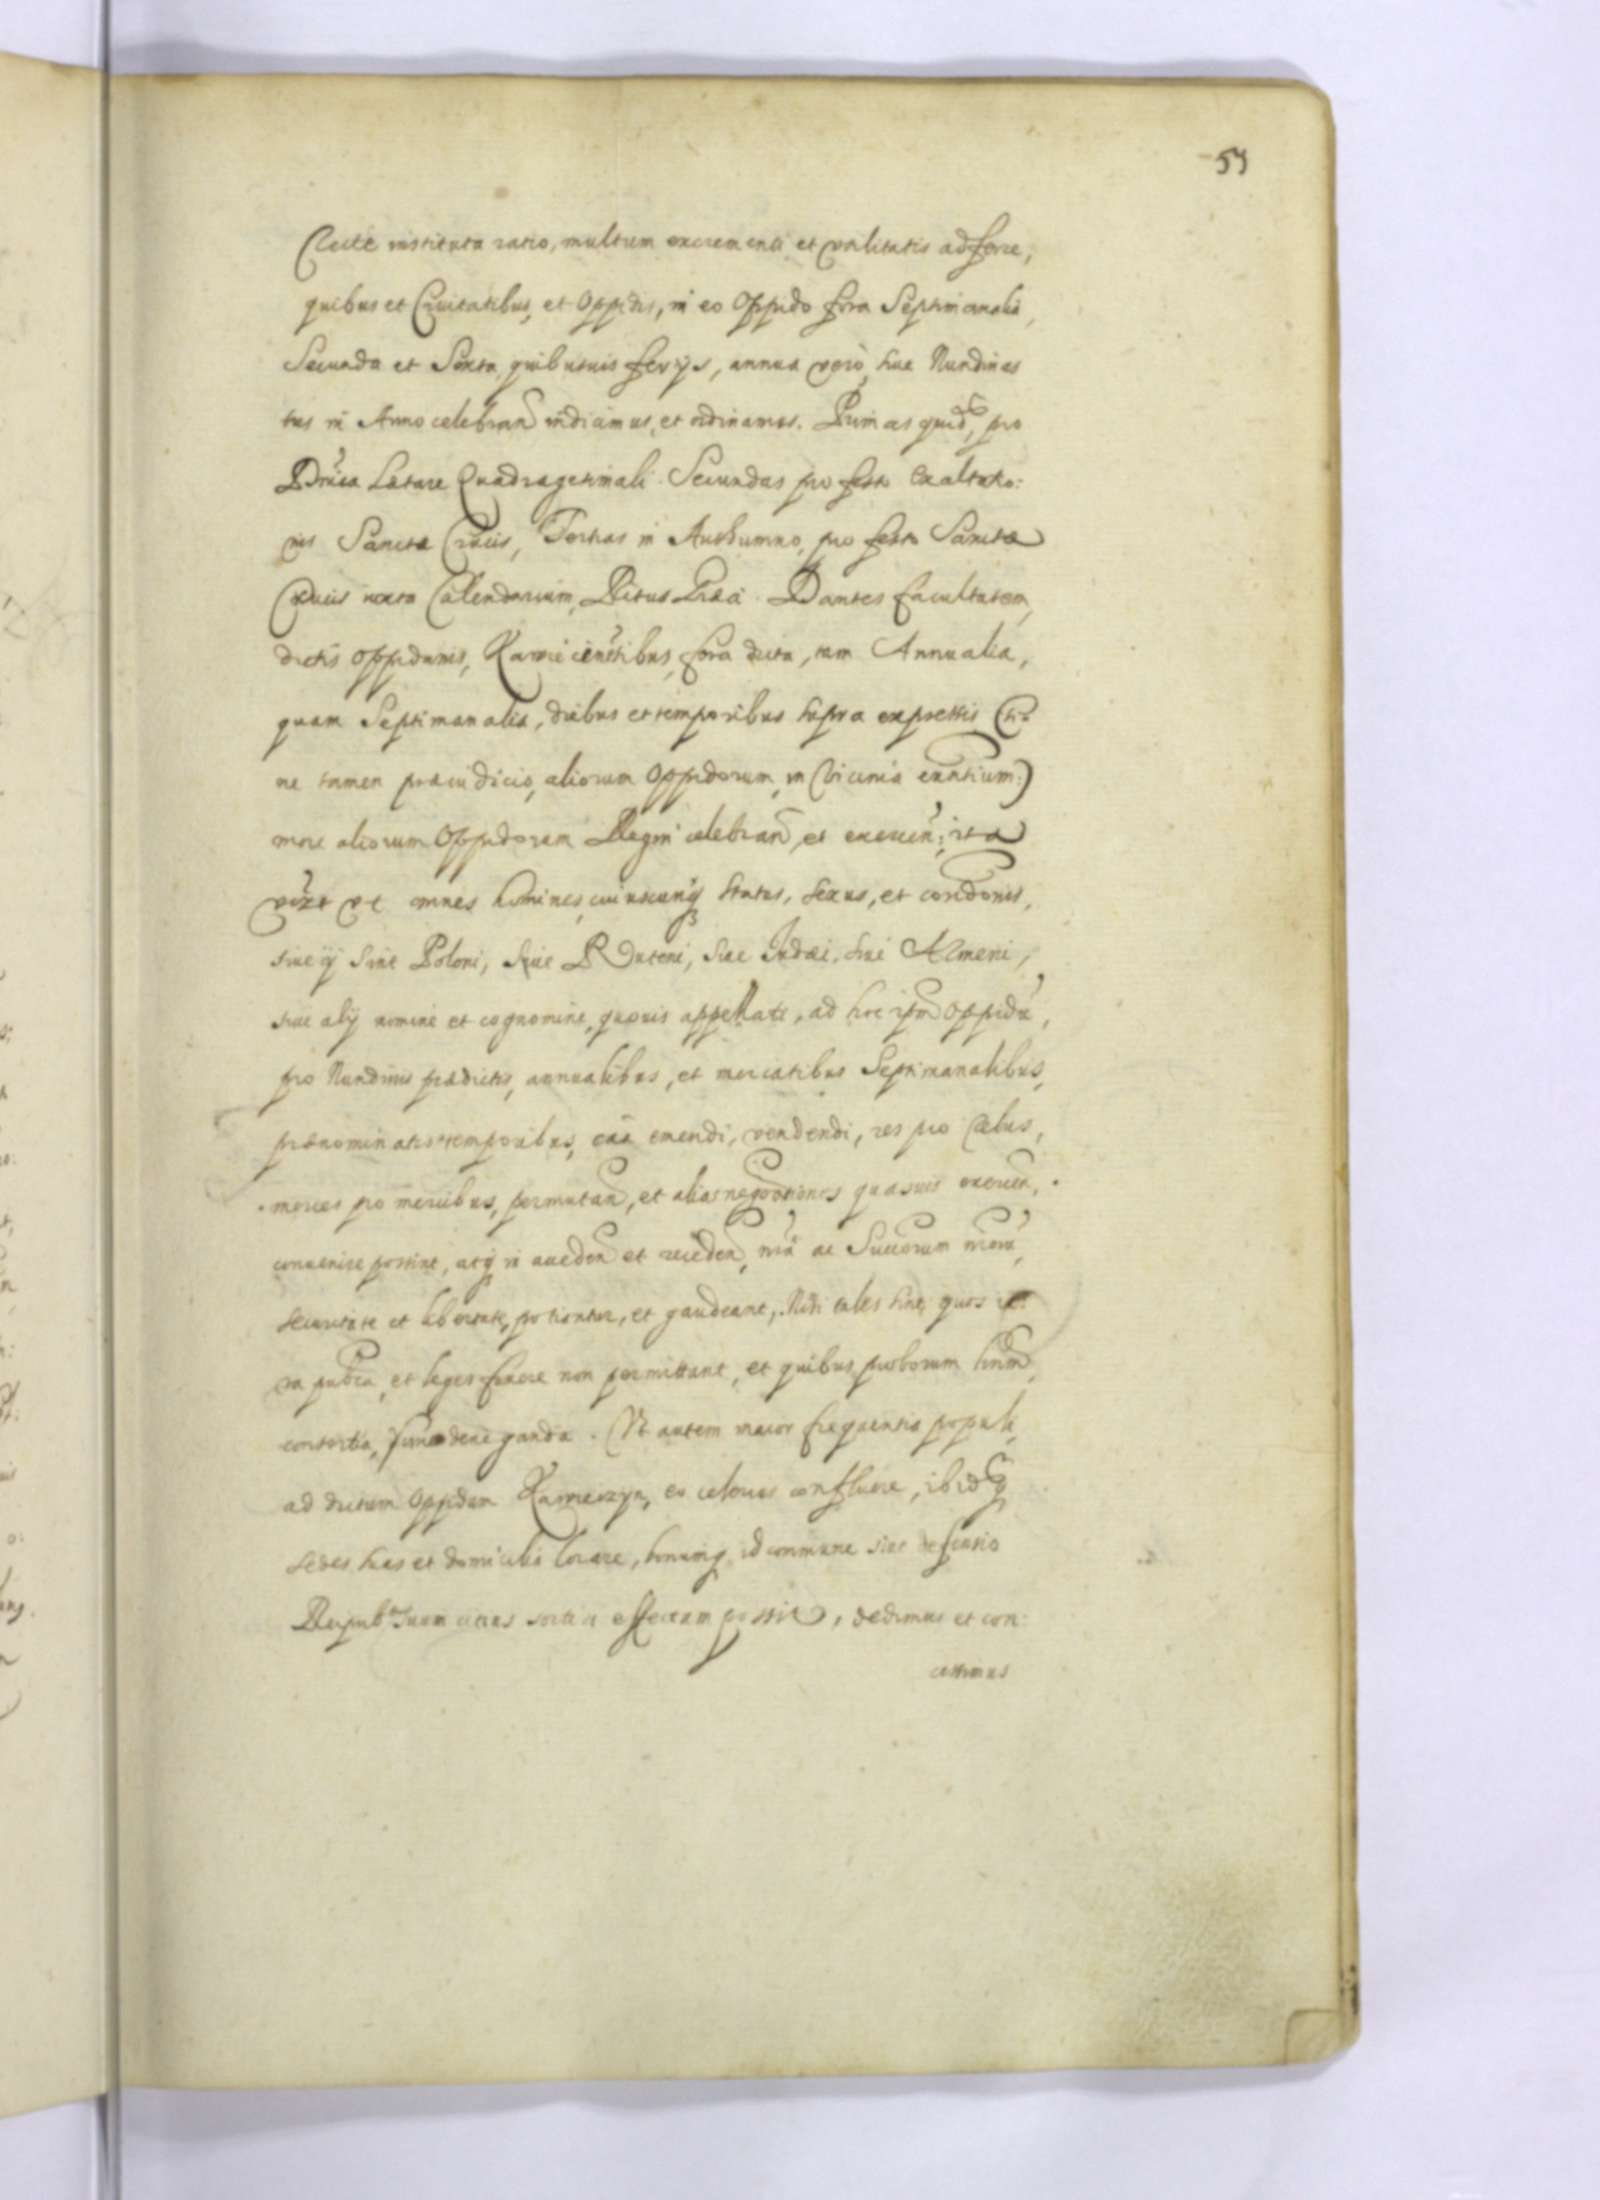 59
Recte instituta ratio, multum excrementi et vtilitatis adferre,
quibus et Civitatibus, et Oppidis, in eo Oppido fora Septimanalia,
Secunda et Sexta, quibusuis ferijs, annua vero, siue Nundinas
tres in Anno celebran indicimus, et ordinamus. Primas quid, pro
Dnica Lætare Quadragesimali. Secundas pro festo Exaltatio:
nis Sanctæ Crucis, Tertias in Authumno, pro festo Sanctæ
Crucis iuxta Calendarium, Ritus Græci. Dantes facultatem,
dictis oppidanis, fora dicta, tam Annualia,
quam Septimanalia, diebus et temporibus supra expressis (si:
ne tamen præiudicio, aliorum Oppidorum, in Vicinia exntium:)
more aliorum Oppidorum Regni celebran, et exercen: ita
vt omnes homines, cuiuscunq status, sexus, et condonis,
siue ij sint Poloni, siue Ruteni, siue Judæi, siue Armeni,
siue alij nomine et cognomine, quouis appellati, ad hoc ipm Oppidu,
pro Nundinis prædictis, annualibus, et mercatibus Septimanalibus,
prænominatis temporibus, cãa emendi, vendendi, res pro rebus,
merces pro mercibus, permutan, et alias negotiationes quasuis exercen,
conuenire possint, atq in acceden et receden, nrã ac Succorum nrorũ,
securitate et libertate, potiantur, et gaudeant, Nisi tales sint, quos iu:
ra publca, et leges fouere non permittunt, et quibus, proborum hnm,
consortia, sunt deneganda. Vt autem maior frequentia populi,
ad dictum Oppidum eo celerius confluere, ibidq
sedes suas et domicilia locare, bonumq id commune siue
Reipub suum citius sortiri effectum possit, dedimus et con:
cessimus